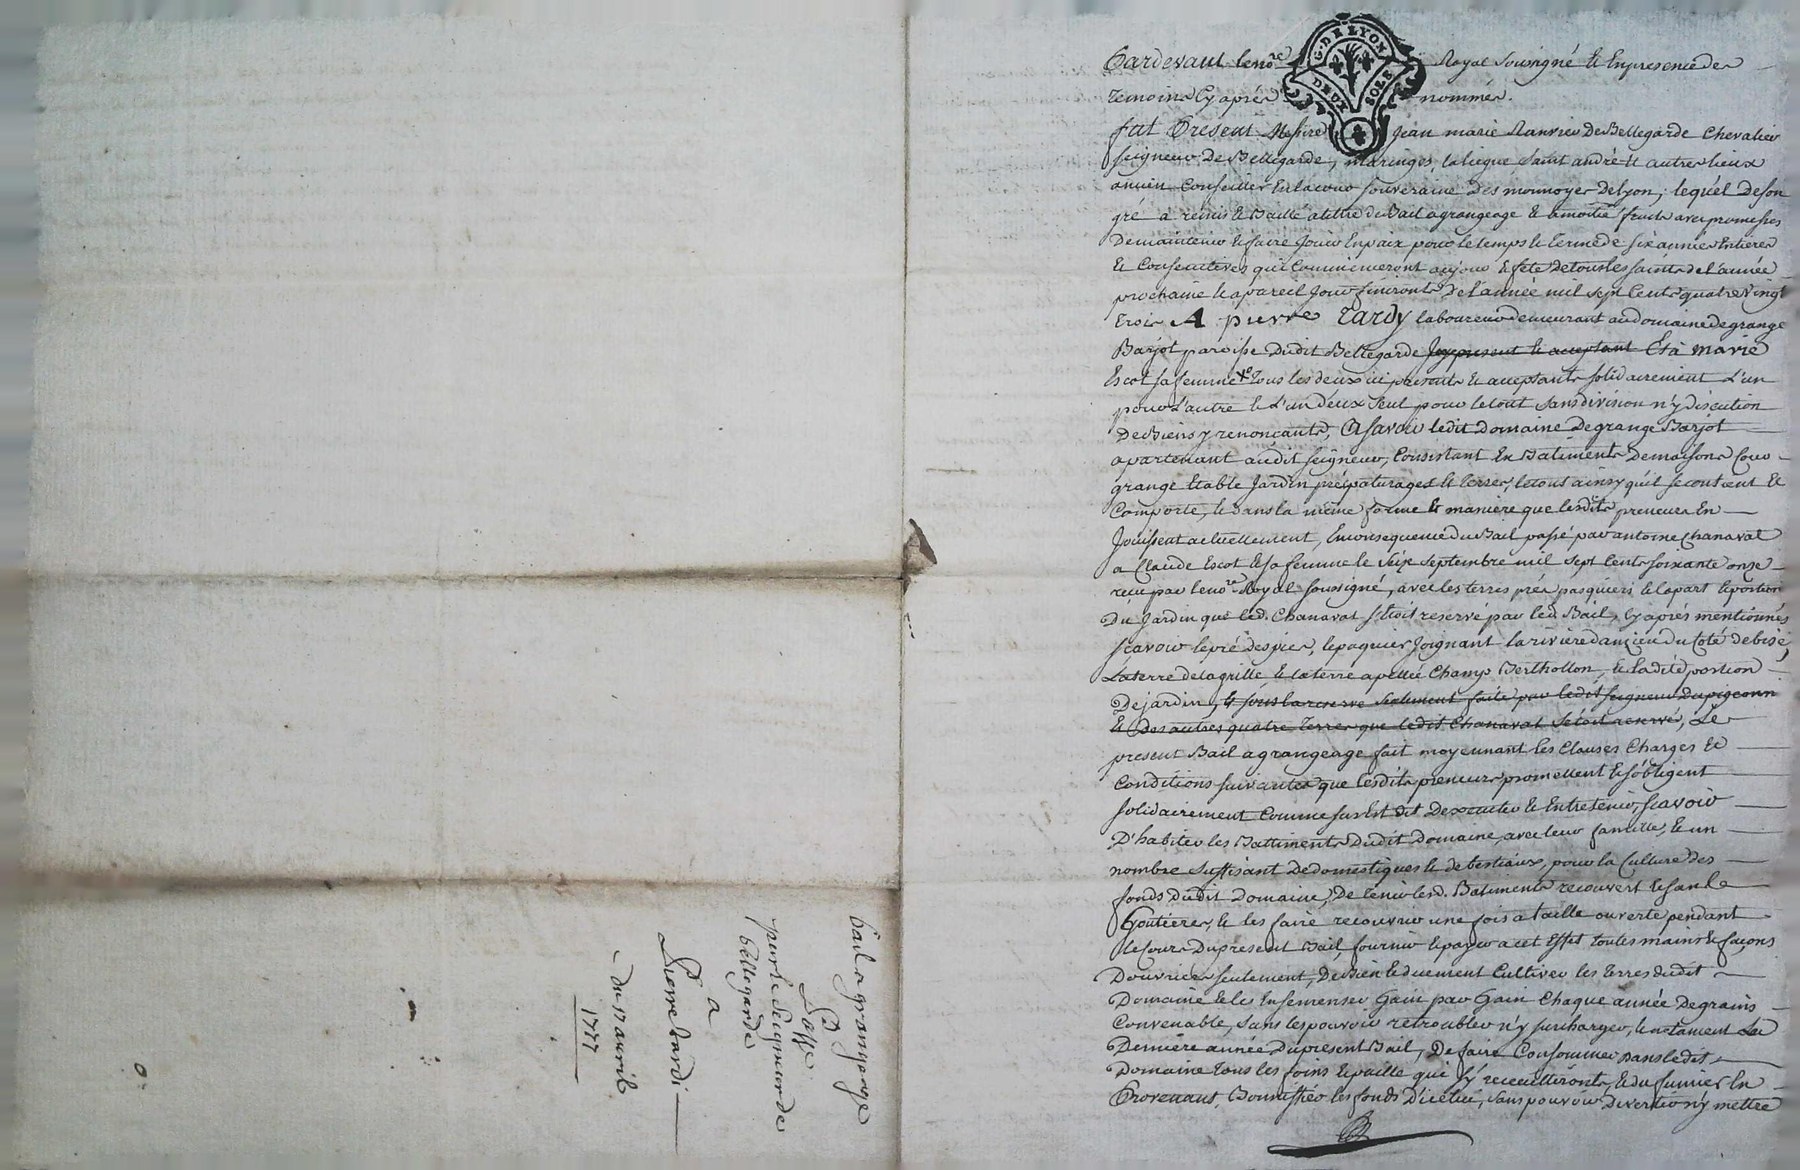 bail a grangeage
Passé
par le Seigneur de
bellegarde
a
Pierre tardi
du 17 avril
1777
G. DE LYON
DEUX SOLS
Pardevant le no.re Royal Soussigné et En presence des
temoins Cy aprés nommés.
fut Present Messire Jean marie Ranvier De Bellegarde Chevalier
seigneur De Bellegarde, maringes, la lieque Saint andré et autres lieux
ancien Conseiller En la cour souveraine Des monnoyes De Lyon, lequel De son
gré a remis et Baillé a titre de Bail a grangeage et a moitié fruits avec promesses
De maintenir et faire Jouir En paix pour le temps et terme de six années Entieres
et Consecutives qui Commenceront au jour et fete de tous les saints de l'année
prochaine et a pareil Jour finiront De l'année mil sept Cents quatre Vingt
trois A pierre Tardy laboureur demeurant au domaine de grange
Barjot paroisse Dudit Bellegarde Icy present et acceptant Et à marie
Escot sa femme tous les deux ici presents et acceptants solidairement L'un
pour L'autre et L'un d'eux seul pour le tout sans division n'y Discution
De Biens y renonçants, A savoir ledit Domaine De grange Barjot
apartenant audit seigneur, Consistant En Batiments De maisons Cour
grange Etable Jardin prés paturages et terres, le tout ainsy qu'il se contient et
Comporte, et dans la même forme et maniere que lesdits preneurs En
Jouissent actuellement, En consequence du Bail passé par antoine Chanavat
a Claude Escot et sa femme le seize septembre mil sept Cents soixante onze
recu par le no.re Royal soussigné, avec les terres prés pasquiers et la part et portion
Du Jardin que led. Chanavat s'etoit reservé par led. Bail, Cy aprés mentionnés
scavoir le pré des pies, le paquier Joignant la riviere d'anzieu du Coté de bise,
La terre de la grille, et la terre apellée Champ Berthollon, et la dite portion
De jardin, et sous la reserve seulement faite par ledit seigneur Du pigeonn
et Des autres quatre terres que ledit Chanavat s'etoit reservé, Le
present Bail a grangeage fait moyennant les Clauses Charges et
Conditions suivantes que lesdits preneurs promettent et s'obligent
solidairement Comme sus Est dit D'executer et Entretenir, scavoir
D'habiter les Battiments Dudit Domaine, avec leur famille, et un
nombre suffisant De domestiques et de bestiaux, pour la Culture Des
fonds Dudit Domaine, De tenir lesd. Batiments recouvert et sans
Goutieres, et les faire recouvrir une fois a taille ouverte pendant
le Cours Du present Bail, fournir et payer a cet Effet toutes mains et façons
D'ouvriers seulement, De Bien et duement Cultiver les terres dudit
Domaine et les Ensemenser Gain par Gain Chaque année De grains
Convenable, sans les pouvoir retroubler n'y surcharger, et notament La
Derniere année Du present Bail, De faire Consommer Dans ledit
Domaine tous les foins et paille qui s'y receuilliront, et du fumier En
Provenant, Bonniffier les fonds D'icelui, sans pouvoir Divertir n'y mettre